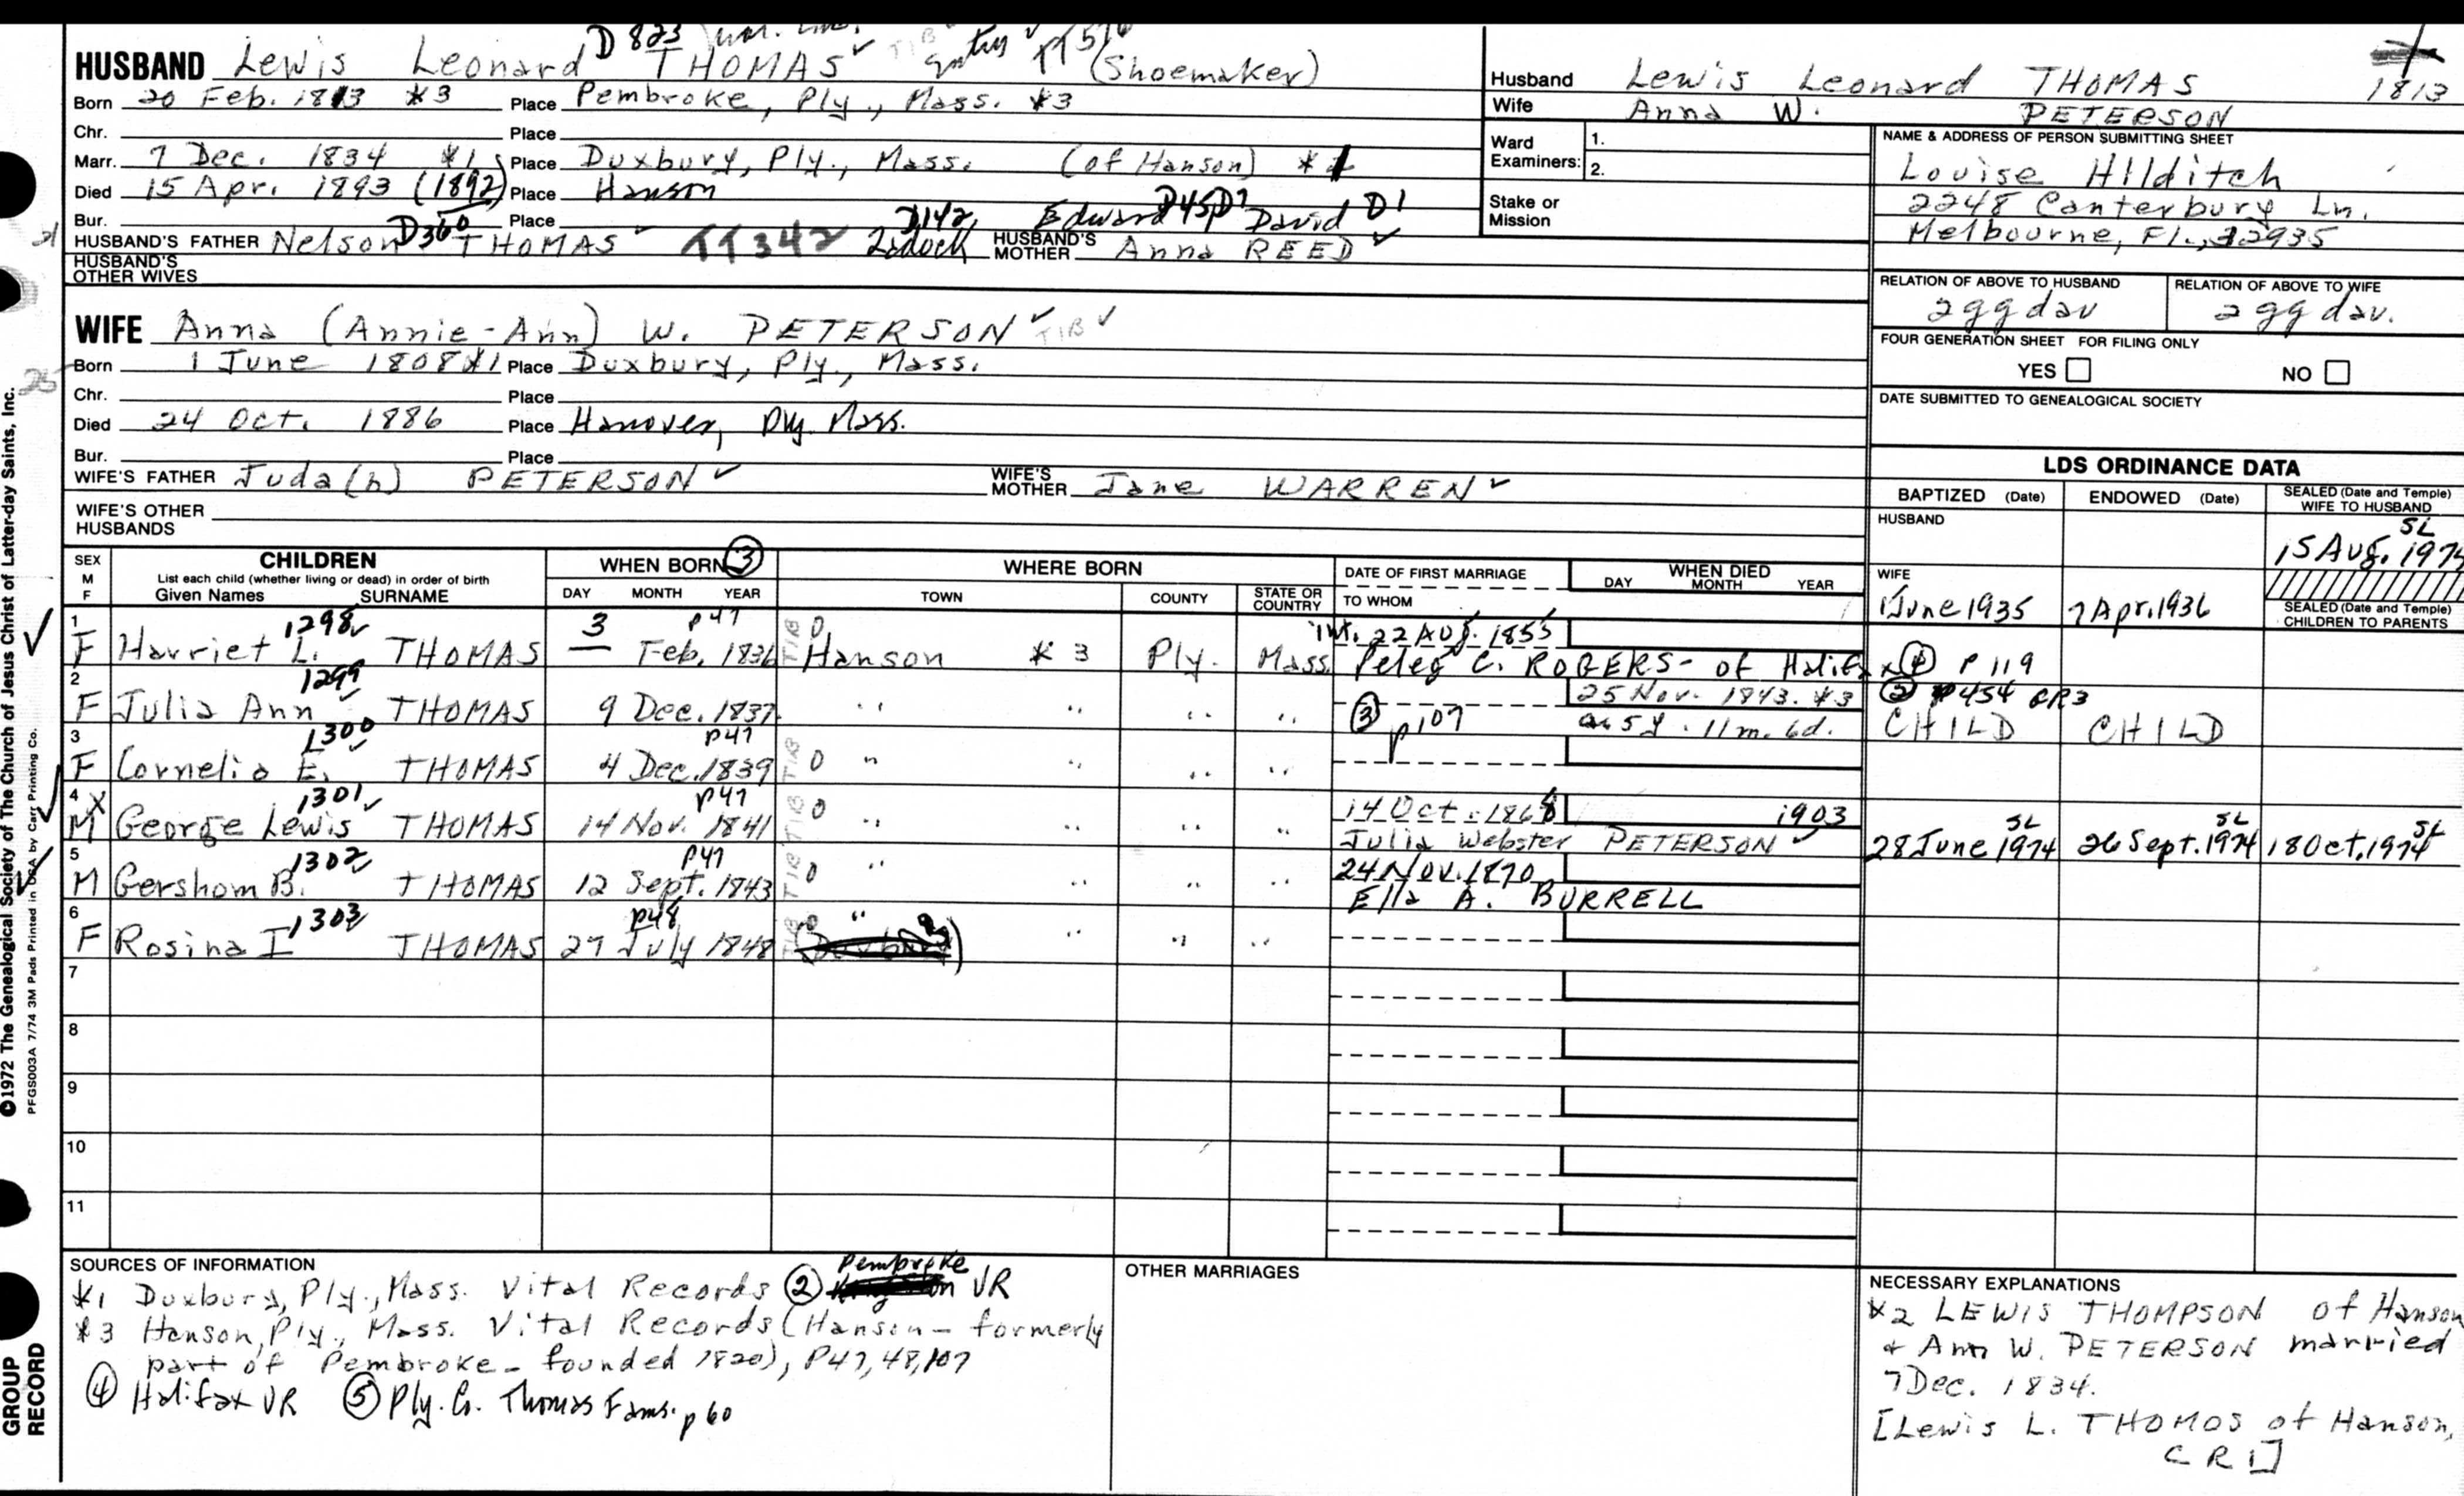 D 823
TIB
HUSBAND Lewis Leonard THOMAS (Shoemaker)
Born 20 Feb. 1813 *3 Place Pembroke, Ply., Mass. *3
Chr. Place
Marr. 7 Dec. 1834 *1 Place Duxbury, Ply., Mass. (of Hanson) *1
Died 15 Apr. 1893 (1892) Place Hanson
Bur. Place
D360 TT342 D142 Edward D45 D7 David D1
HUSBAND'S FATHER Nelson THOMAS HUSBAND'S MOTHER Anna REED
HUSBAND'S OTHER WIVES
WIFE Anna (Annie-Ann) W. PETERSON TIB
Born 1 June 1808 *1 Place Duxbury, Ply., Mass.
Chr. Place
Died 24 Oct. 1886 Place Hanover, Ply. Mass.
Bur. Place
WIFE'S FATHER Juda(h) PETERSON WIFE'S MOTHER Jane WARREN
WIFE'S OTHER HUSBANDS
Husband Lewis Leonard THOMAS 1813
Wife Anna W. PETERSON
Ward Examiners: 1.
2.
Stake or Mission
NAME & ADDRESS OF PERSON SUBMITTING SHEET
Louise Hilditch
2248 Canterbury Ln.
Melbourne, Fl., 32935
RELATION OF ABOVE TO HUSBAND RELATION OF ABOVE TO WIFE
2ggdau 2ggdau.
FOUR GENERATION SHEET FOR FILING ONLY
YES NO
DATE SUBMITTED TO GENEALOGICAL SOCIETY
LDS ORDINANCE DATA
BAPTIZED (Date) ENDOWED (Date) SEALED (Date and Temple) WIFE TO HUSBAND
HUSBAND SL
15 Aug. 1974
WIFE
1 June 1935 7 Apr. 1936 SEALED (Date and Temple) CHILDREN TO PARENTS
SEX M F CHILDREN WHEN BORN 3 WHERE BORN DATE OF FIRST MARRIAGE WHEN DIED
List each child (whether living or dead) in order of birth
Given Names SURNAME DAY MONTH YEAR TOWN COUNTY STATE OR COUNTRY TO WHOM DAY MONTH YEAR
1 1298 3 p47 TIB int. 22 Aug. 1855
F Harriet L. THOMAS Feb. 1836 Hanson *3 Ply. Mass. Peleg C. ROGERS- of Halifax 4 P 119
2 1299 25 Nov. 1843. *3 2 P454 CR3
F Julia Ann THOMAS 9 Dec. 1837 " " " " 3 p107 ae 5y. 11m. 6d. CHILD CHILD
3 1300 p47 TIB
F Cornelia E. THOMAS 4 Dec. 1839 " " " "
4 X 1301 p47 TIB 14 Oct. 1868 1903 SL SL SL
M George Lewis THOMAS 14 Nov. 1841 " " " " Julia Webster PETERSON 28 June 1974 26 Sept. 1974 18 Oct. 1974
5 1302 p47 TIB 24 Nov. 1870
M Gershom B. THOMAS 12 Sept. 1843 " " " " Ella A. BURRELL
6 1303 p48 TIB
F Rosina I THOMAS 27 July 1848 " (Duxbury) " " "
7
8
9
10
11
SOURCES OF INFORMATION
*1 Duxbury, Ply., Mass. Vital Records 2 Pembroke VR
*3 Hanson, Ply., Mass. Vital Records (Hanson - formerly
part of Pembroke - founded 1820), P47, 48, 107
4 Halifax VR 5 Ply. Co. Thomas Fams. p 60
OTHER MARRIAGES
NECESSARY EXPLANATIONS
*2 LEWIS THOMPSON of Hanson
& Ann W. PETERSON married
7 Dec. 1834.
[Lewis L. THOMOS of Hanson,
C R 1]
©1972 The Genealogical Society of The Church of Jesus Christ of Latter-day Saints, Inc.
PFGS003A 7/74 3M Pads Printed in USA by Carr Printing Co.
GROUP RECORD